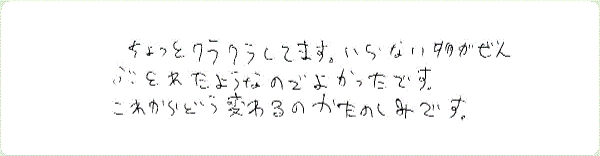 ちょっとクラクラしてます。いらない物がぜん
ぶとれたようなのでよかったです。
これからどう変わるのかたのしみです。